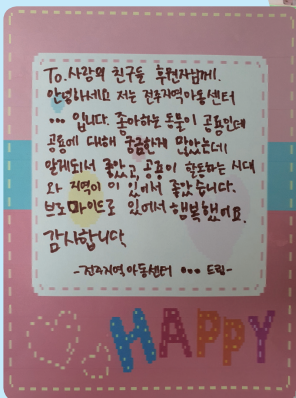 To. 사랑의 친구들 후원자님께!.
안녕하세요 저는 전주지역아동센터
••• 입니다. 좋아하는 동물이 공룡인데
공룡에 대해 궁금한게 많았는데
알게되서 좋았고, 공룡이 활동하는 시대
와 지역이 이 있어서 좋았습니다.
브로마이드로 있어서 행복했어요.
감사합니다.
-전주지역아동센터 ••• 드림-
HAPPY